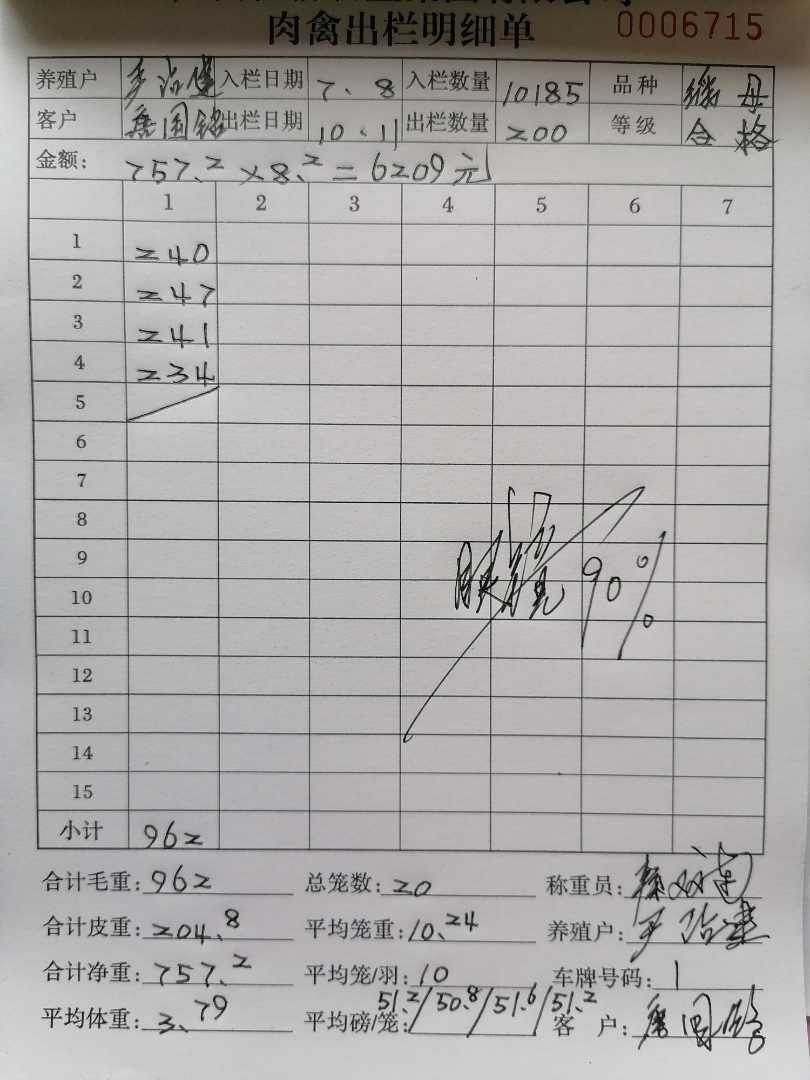 肉禽出栏明细单 0006715
养殖户 入栏日期 7.8 入栏数量 10185 品种 母
客户 唐国铭 出栏日期 10.11 出栏数量 200 等级 合格
金额: 757.2×8.2=6209元
1 2 3 4 5 6 7
1 240
2 247
3 241
4 234
5
6
7
8
9 90%
10
11
12
13
14
15
小计 962
合计毛重: 962 总笼数: 20 称重员:
合计皮重: 204.8 平均笼重: 10.24 养殖户:
合计净重: 757.2 平均笼/羽: 10 车牌号码: 1
平均体重: 3.79 平均磅/笼: 51.2/50.8/51.6/51.2 客 户: